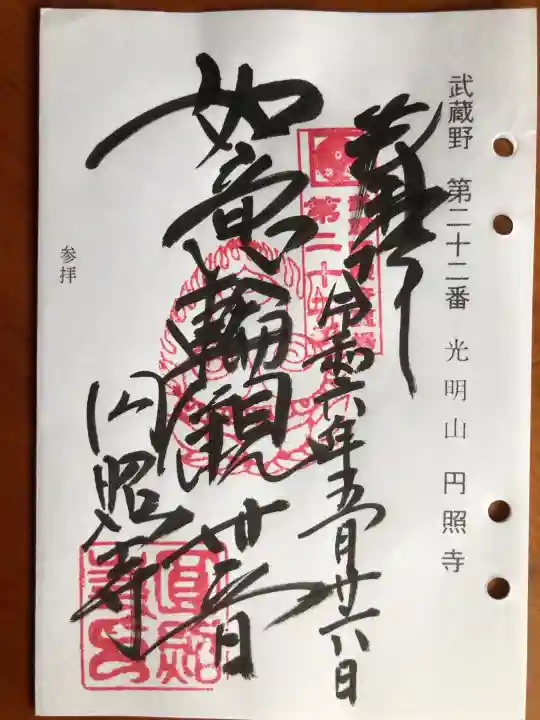 武蔵野 第二十二番 光明山 円照寺
奉拝
令和六年五月廿六日
如意輪観世音
円照寺
参拝